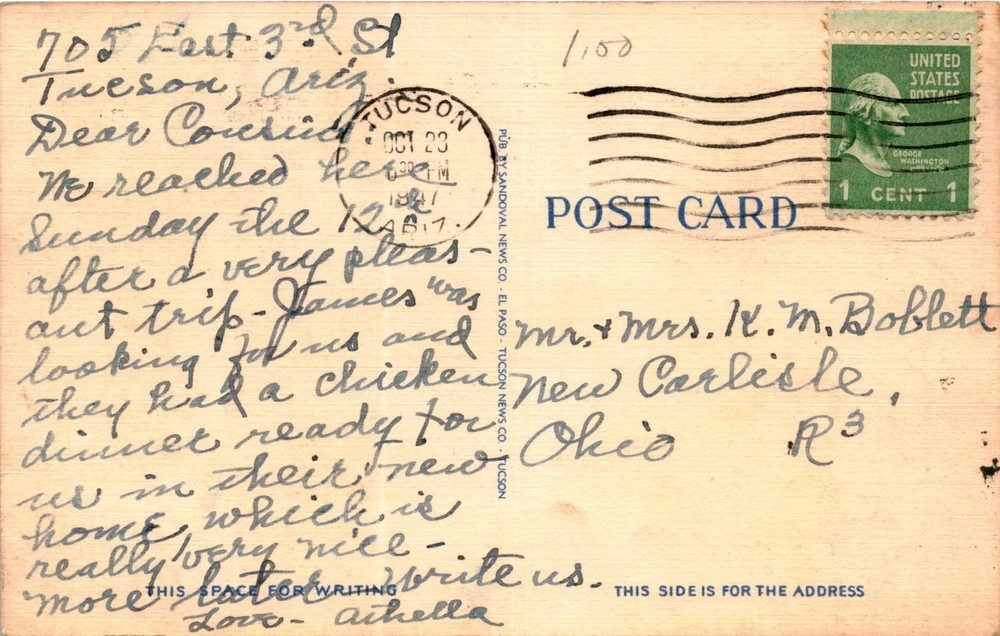 705 East 3rd St
Tucson, Ariz.
Dear Cousins
We reached here
Sunday the 12th
after a very pleas-
ant trip - James was
looking for us and
they had a chicken
dinner ready for
us in their new
home, which is
really very nice -
more later write us.
Love -
THIS SPACE FOR WRITING
TUCSON
OCT 23
PM
1947
ARIZ.
PUB. BY SANDOVAL NEWS CO. - EL PASO - TUCSON NEWS CO. - TUCSON
1,00
UNITED
STATES
POSTAGE
GEORGE
WASHINGTON
1 CENT 1
POST CARD
Mr. + Mrs. K. M. Boblett
New Carlisle,
Ohio R3
THIS SIDE IS FOR THE ADDRESS